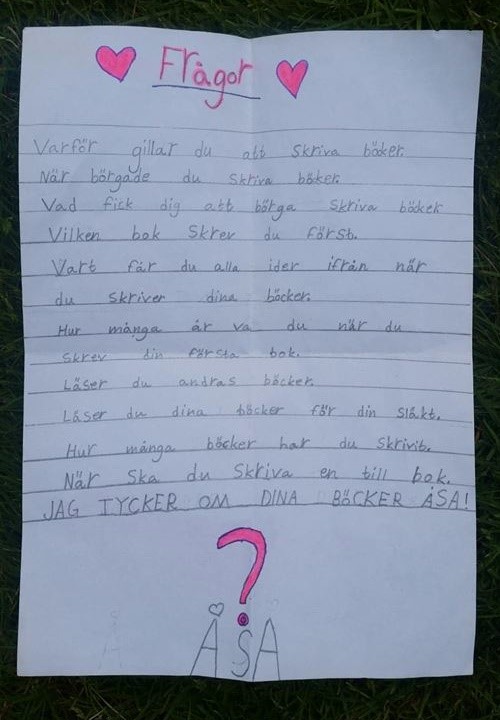 Frågor
Varför gillar du att skriva böcker.
När börgade du skriva böker.
Vad fick dig att börga skriva böcker
Vilken bok skrev du först.
Vart får du alla ider ifrån når
du skriver dina böcker.
Hur många år va du när du
skrev din första bok.
Läser du andras böcker.
Läser du dina böcker för din släkt.
Hur många böcker har du skrivit.
När ska du skriva en till bok.
JAG TYCKER OM DINA BÖCKER ÅSA!
?
ÅSA